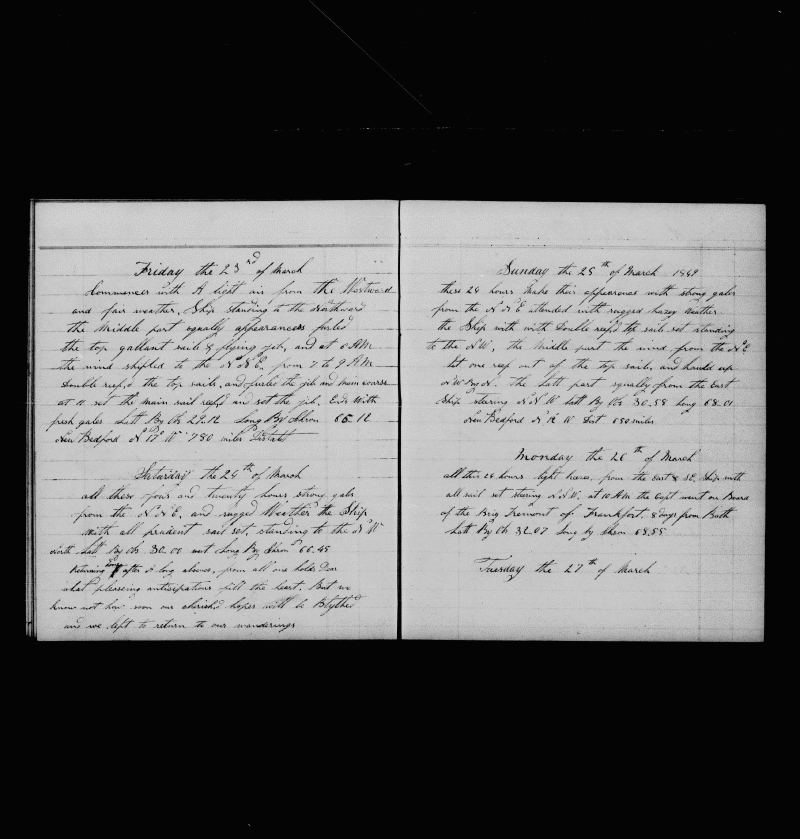 Friday the 23rd of March
Commences with A light air from the Westward
and fair weather, Ship standing to the Northward
the Middle part squally appearances furled
the top gallant sails & flying jib, and at 5 AM
the wind shifted to the N N E, from 7 to 9 AM
Double reef,d the top sails, and furled the jib and main course
at 11 set the main sail reef,d and set the jib. Ends With
fresh gales Latt By Ob 29.12 Long By Chron 65.12
New Bedford N W 780 miles Distant
Saturday the 24th of March
all these four and twenty hours strong gales
from the N N E, and rugged Weather the Ship
with all prudent sail set, standing to the N W
Latt By Ob 30.00 Long By Chron 66.45
Returning home after A long absence, from all one holds Dear
what pleasing anticipations fill the heart. But we
know not how soon our cherish,d hopes will be Blythed
and we left to return to our wanderings
Sunday the 25th of March 1849
these 24 hours make their appearance with strong gales
from the N N E attended with rugged hazy Weather
the Ship with with Double reef,d the sail set standing
to the N W, the Middle part the wind from the N E
let one reef out of the top sails, and hauled up
N W By N. the Latt part squally from the East
Ship steering N N W Latt By Obs 30.58 Long 68.01
New Bedford N W Dist 650 miles
Monday the 26th of March
all this 24 hours light breeze, from the East & SE, Ship with
all sail set stering N N W. at 10 AM the Capt went on Board
of the Brig Tremont of Frankfort. 8 days from Bath
Latt By Ob 32.07 Long by Chron 68.55
Tuesday the 27th of March